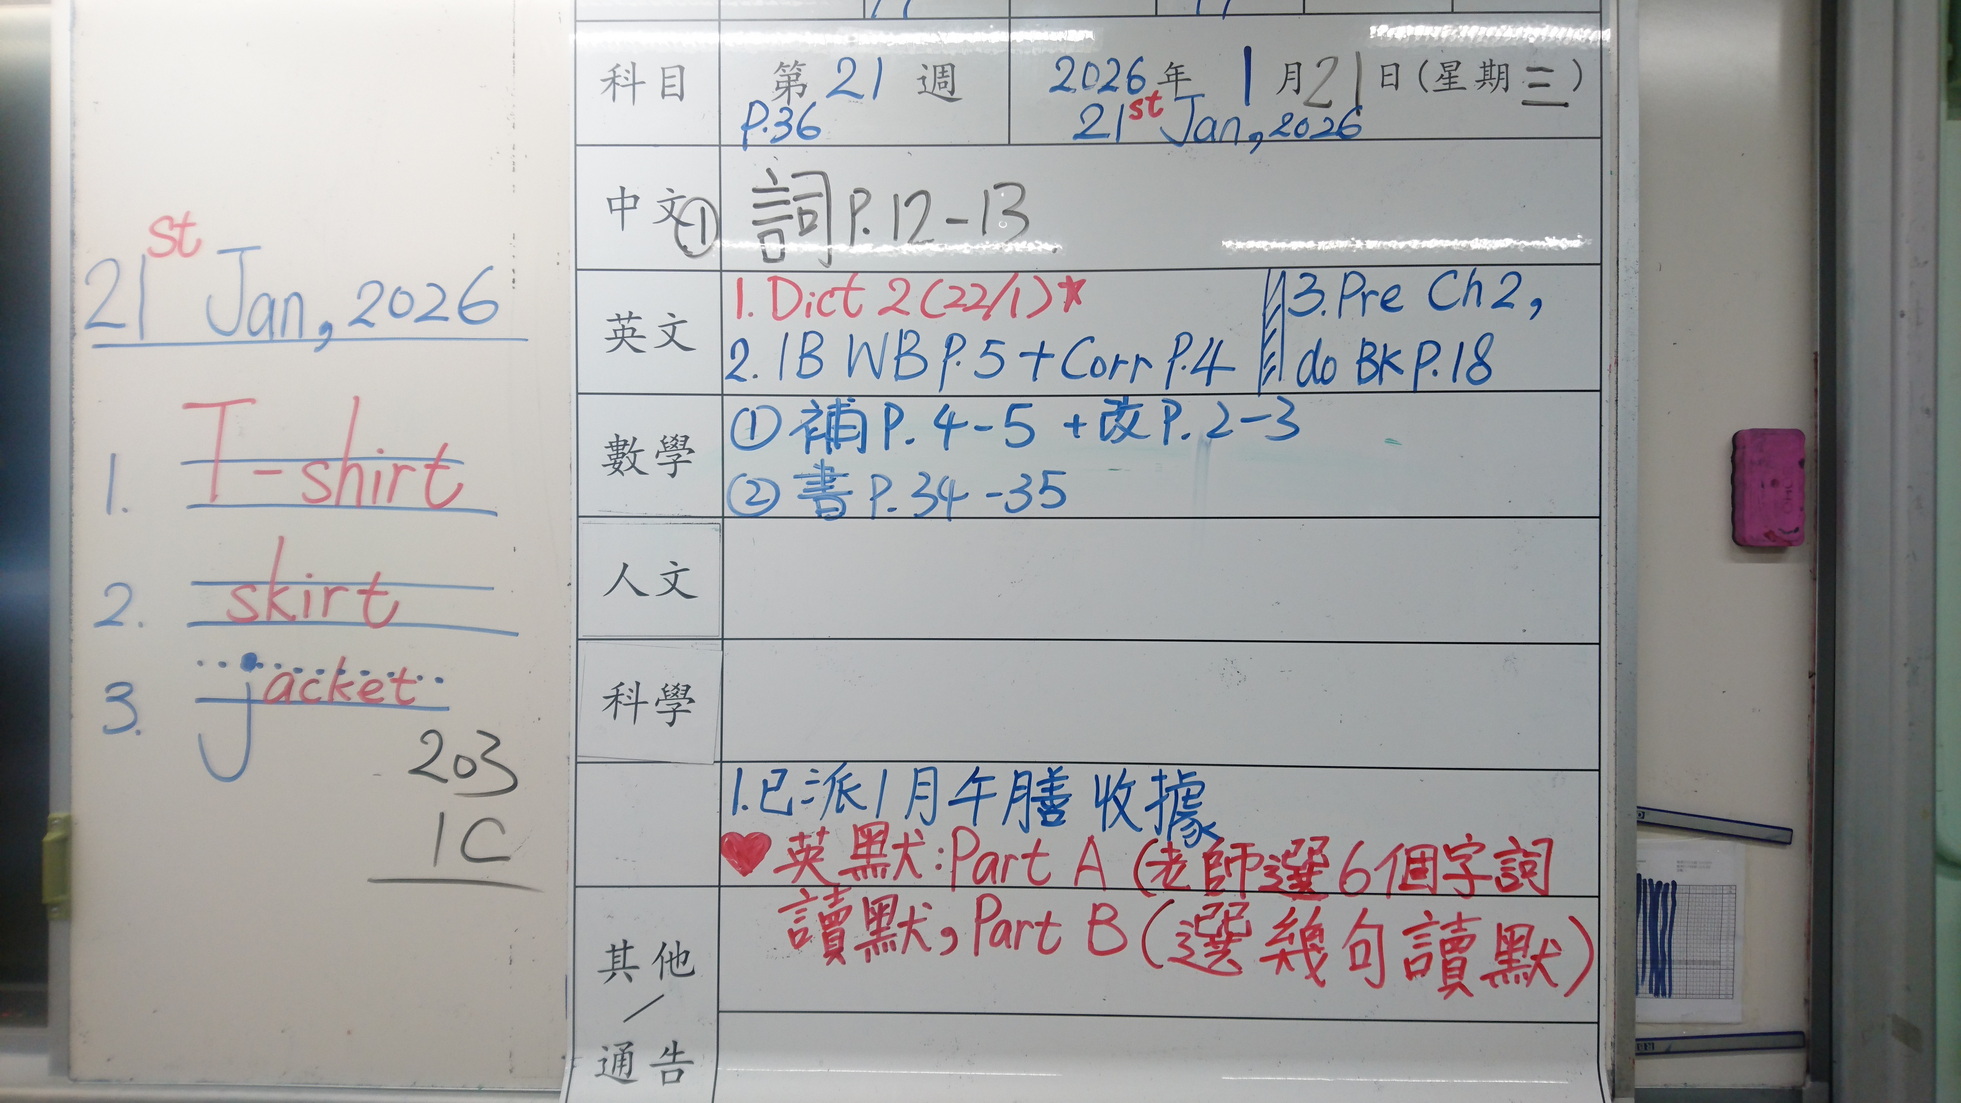 21st Jan, 2026
1. T-shirt
2. skirt
3. jacket
203
1C
科目 第21週 2026年1月21日(星期三)
P.36 21st Jan, 2026
中文 ① 詞P.12-13
英文
1. Dict 2 (22/1)*
2. 1B WB P.5 + Corr P.4
3. Pre Ch2,
do BK P.18
數學
① 補P.4-5 +改P.2-3
② 書P.34-35
人文
科學
1.已派1月午膳收據
♥英默:Part A (老師選6個字詞
讀默, Part B (選幾句讀默)
其他
/
通告